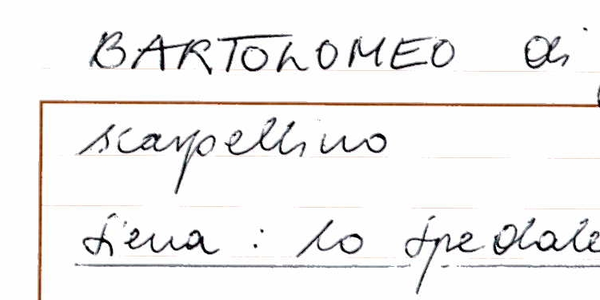 BARTOLOMEO di
scarpellino
Siena : lo Spedale